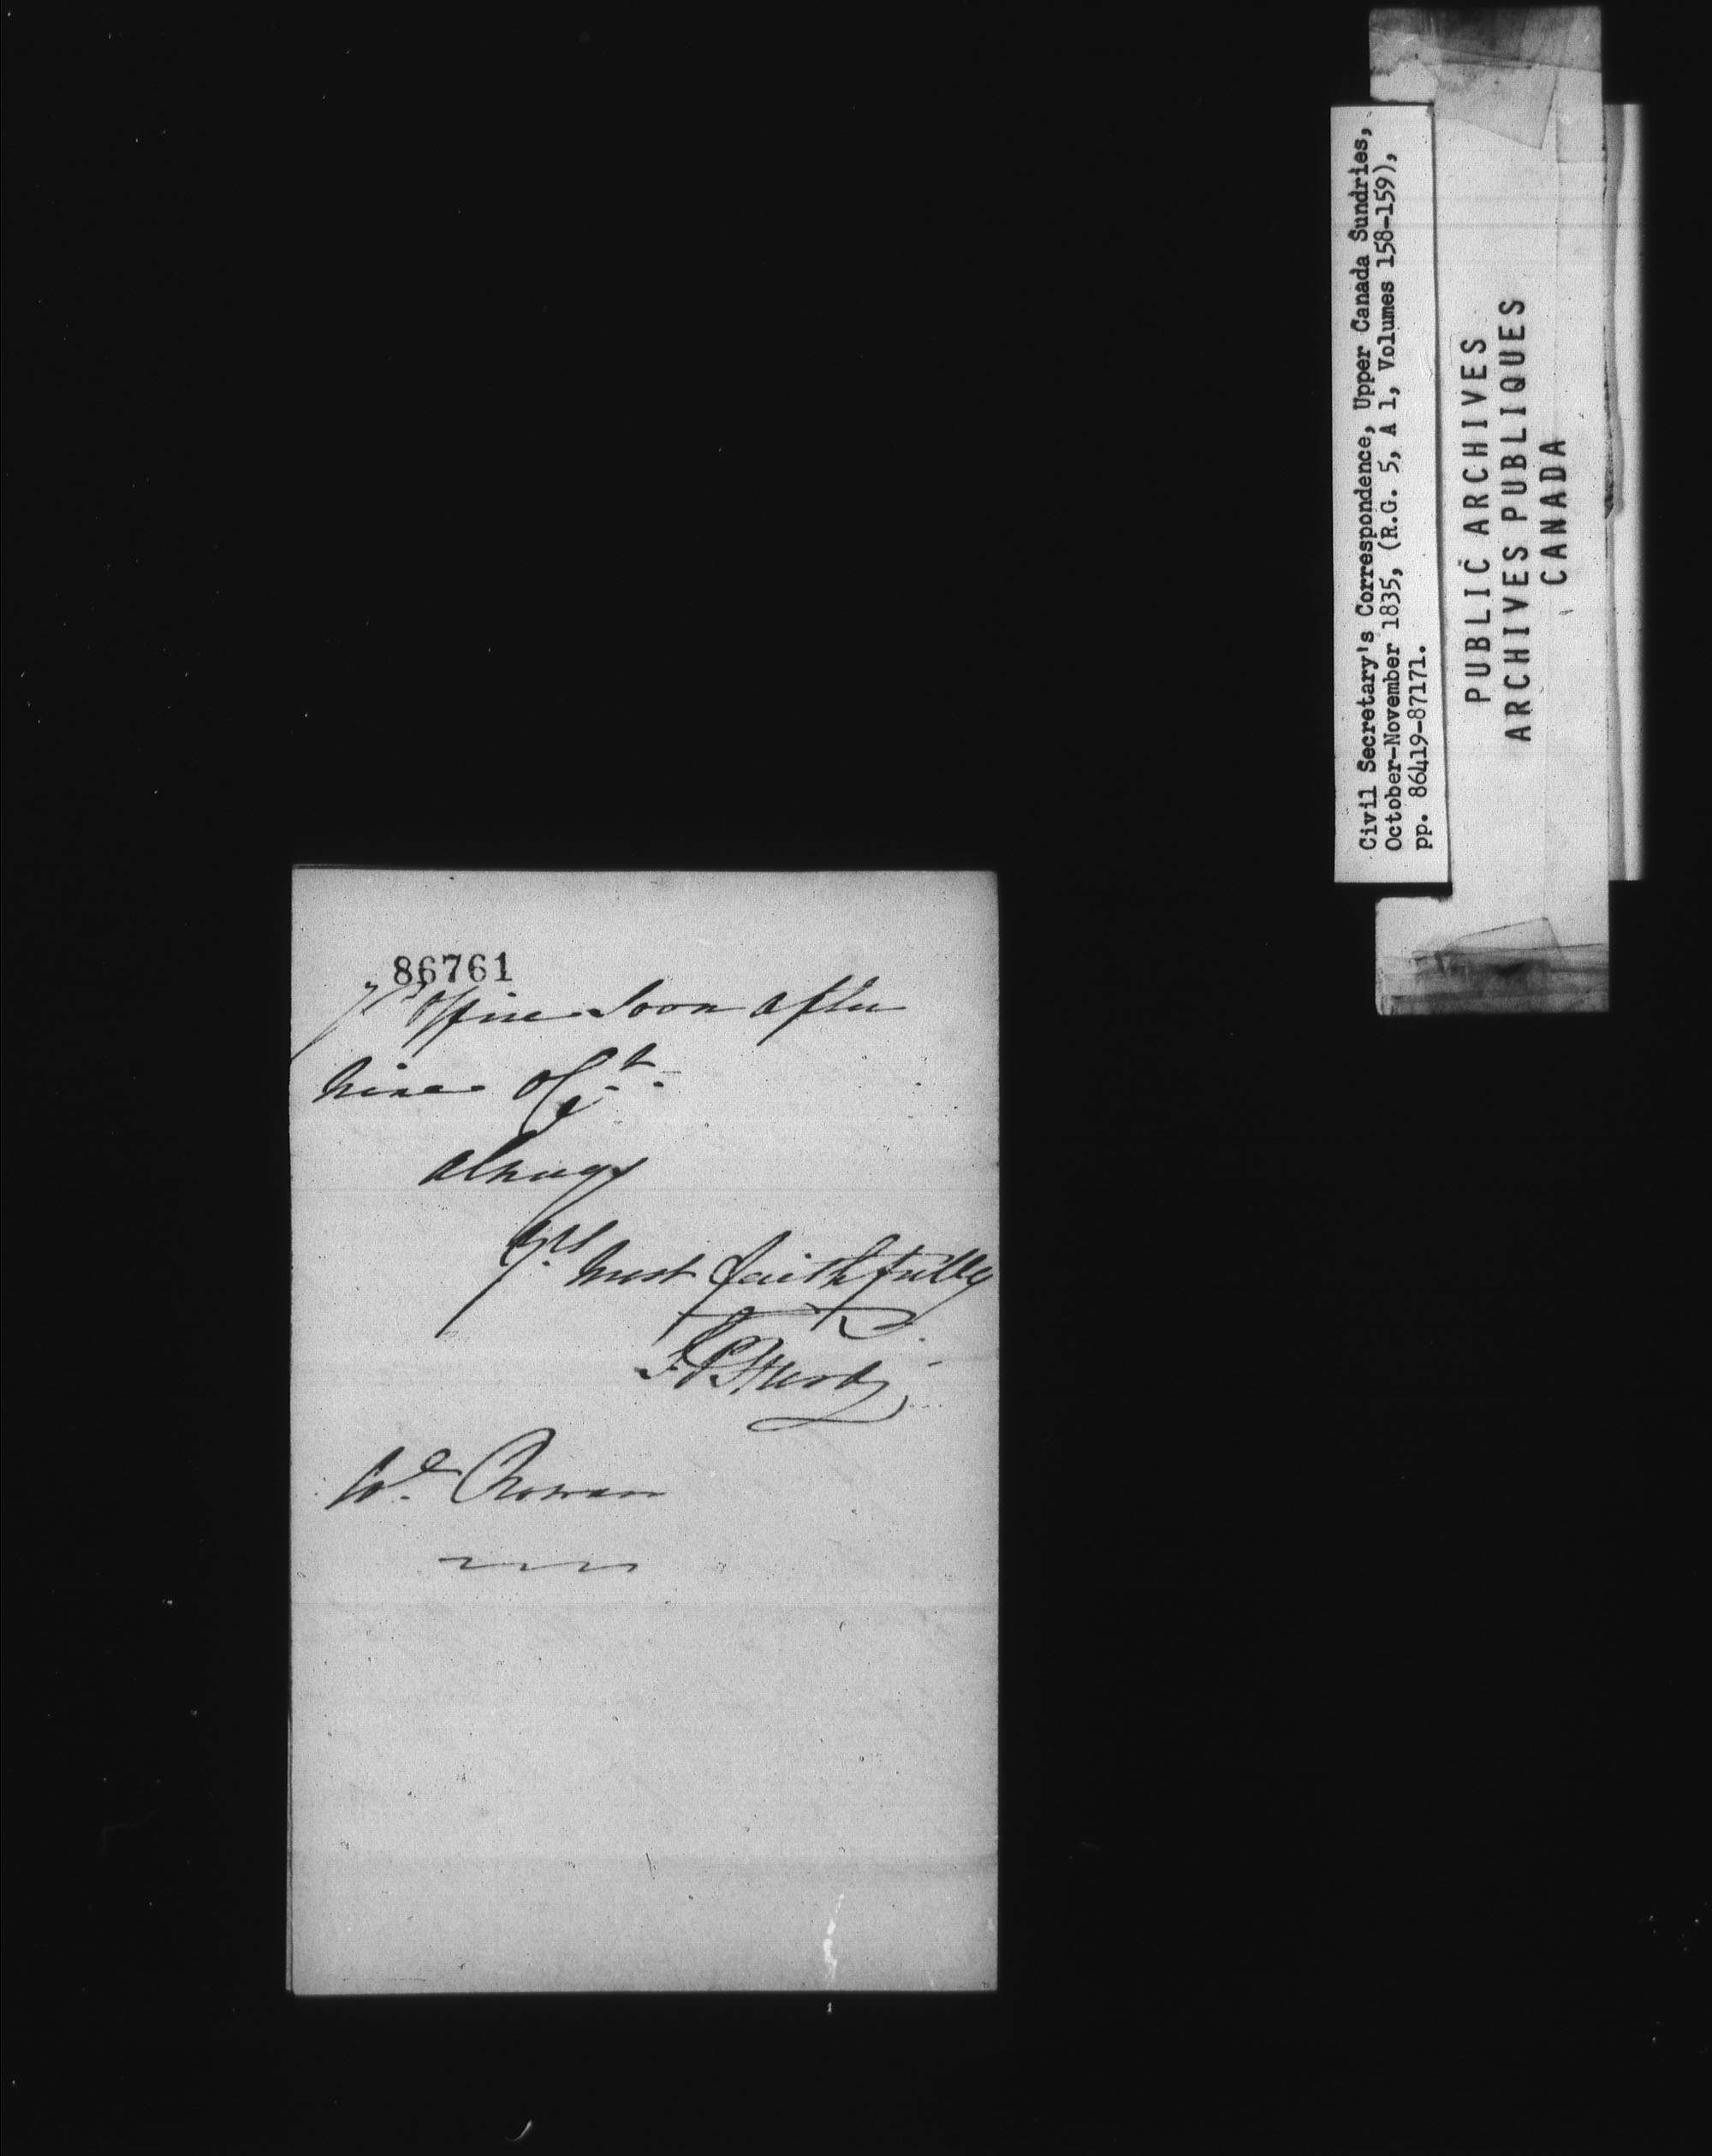 86761
yr office soon after
nine O'C.k.
always
yrs most faithfully
S P Hurd
Wm Rowan
Civil Secretary's Correspondence, Upper Canada Sundries,
October-November 1835, (R.G. 5, A 1, Volumes 158-159),
pp. 86419-87171.
PUBLIC ARCHIVES
ARCHIVES PUBLIQUES
CANADA